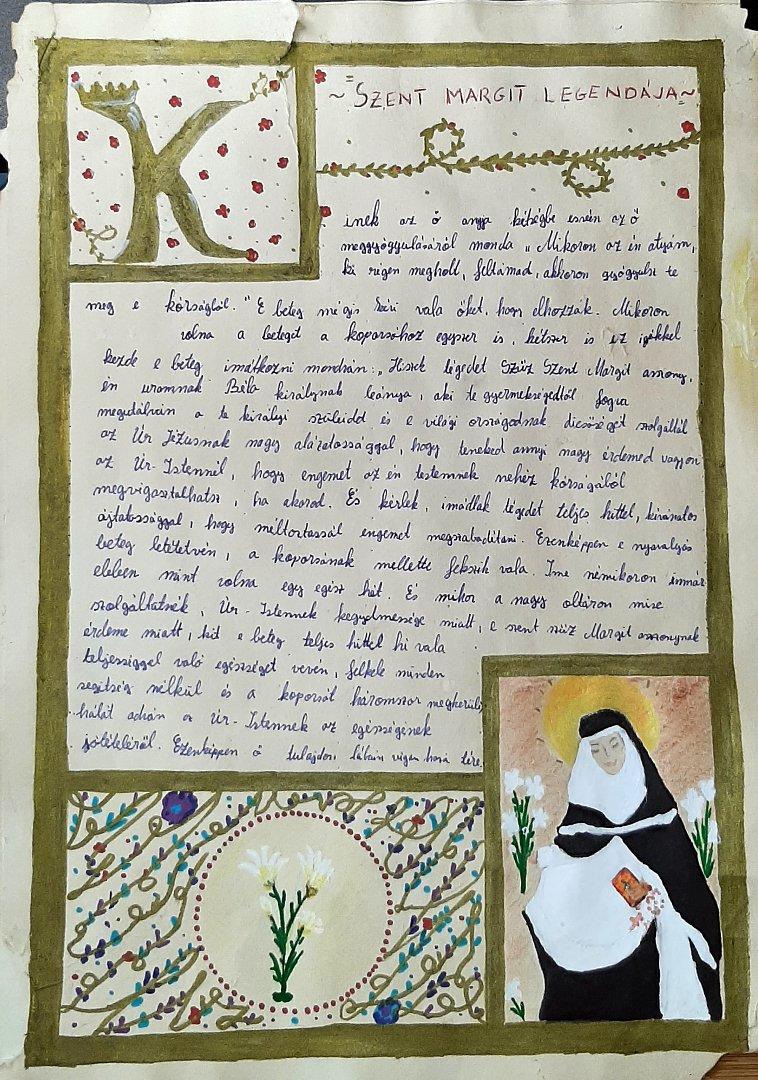 ~ SZENT MARGIT LEGENDÁJA ~
K
inek az ő anyja kétségbe esvén az ő
meggyógyulásáról monda „Mikoron az én atyám,
ki régen megholt, feltámad, akkoron gyógyulsz te
meg e kórságból." E beteg mégis kéri vala őket, hogy elhozzák. Mikoron
volna a beteget a koporsóhoz egyszer is, kétszer is ez igékkel
kezde e beteg imátkozni mondván: „Hiszek tégedet Szűz Szent Margit asszony,
én uramnak Béla királynak leánya, aki te gyermekségedtől fogva
megutálván a te királyi szüleidd és e világi országodnak dicsőségét szolgáltál
az Úr Jézusnak nagy alázatossággal, hogy teneked annyi nagy érdemed vagyon
az Úr-Istennél, hogy engemet az én testemnek nehéz kórságából
megvigasztalhatsz, ha akarod. És kérlek, imádlak tégedet teljes hittel, kívánatos
ájtatossággal, hogy méltóztassál engemet megszabadítani. Ezenképpen e nyavalyás
beteg letétetvén, a koporsónak mellette fekszik vala. Íme némikoron immár
ebben mint volna egy egész hét. És mikor a nagy oltáron mise
szolgáltatnék, Úr-Istennek kegyelmessége miatt, e szent szűz Margit asszonynak
érdeme miatt, kit e beteg teljes hittel hí vala
teljességgel való egészséget vevén, felkele minden
segítség nélkül és a koporsót háromszor megkerülé
hálát adván az Úr-Istennek az egészségének
jótételéről. Ezenképpen ő tulajdon lábain vígan haza tére.